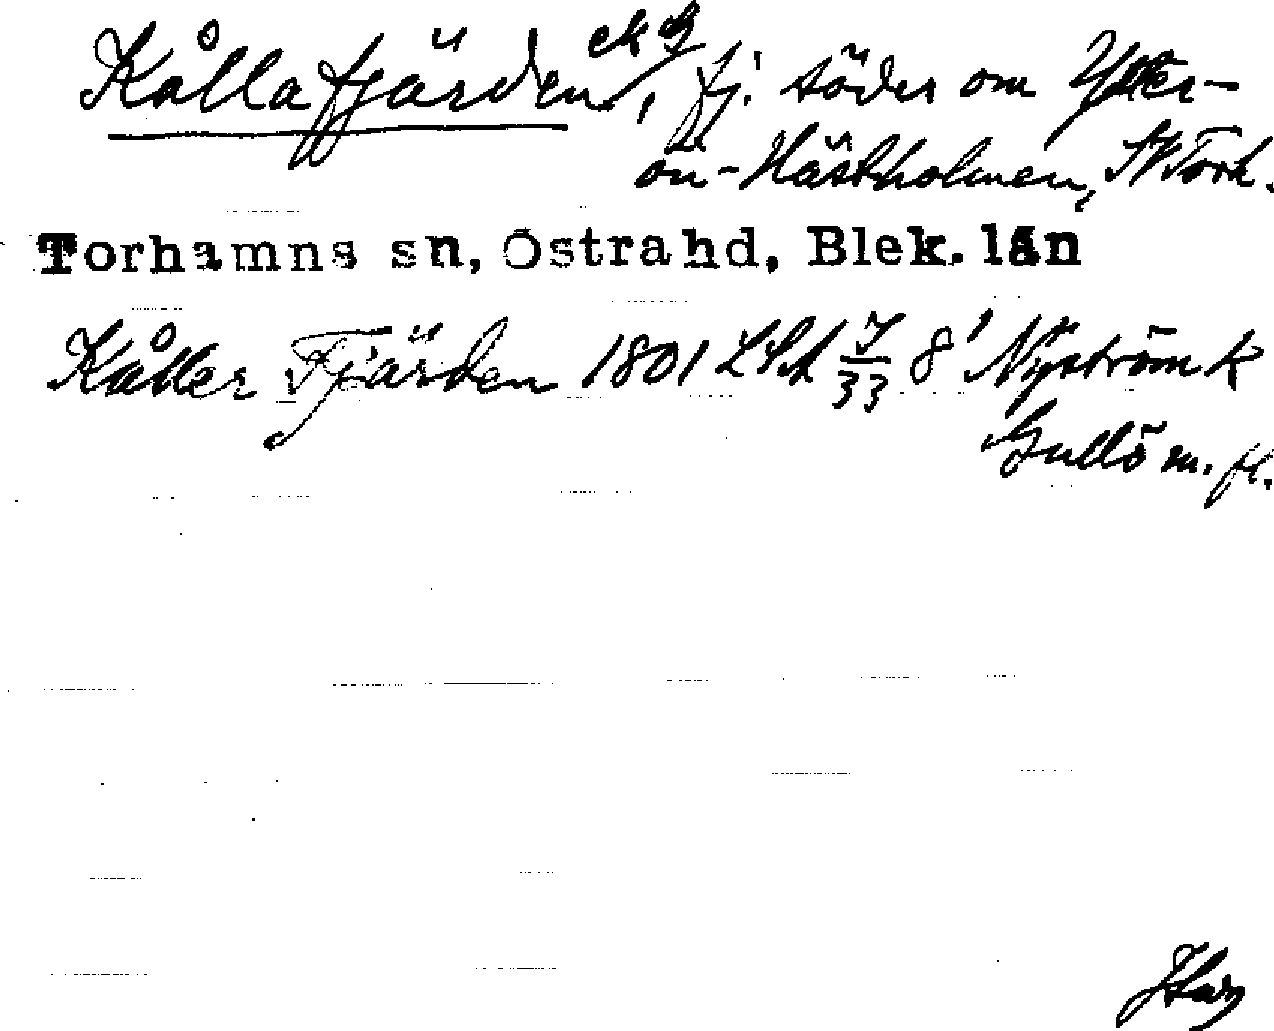 Kållafjärden, ek G, fj. söder om Ytter-
ön-Hästholmen, SV Torh.
Torhamns sn, Östrahd, Blek. län
Kåller Fjärden 1801 LSA 7/33 8' Nyström k
Gullö m. fl.